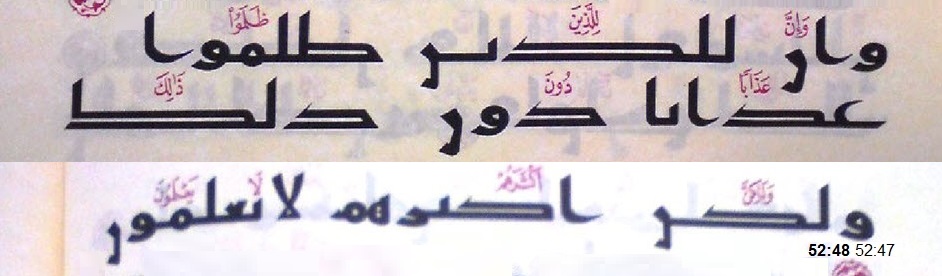 وَإِنَّ لِلَّذِينَ ظَلَمُوا۟
وان للذين ظلموا
عَذَابًا دُونَ ذَٰلِكَ
عذابا دون ذلك
وَلَٰكِنَّ أَكْثَرَهُمْ لَا يَعْلَمُونَ
ولكن اكثرهم لا يعلمون
52:48 52:47